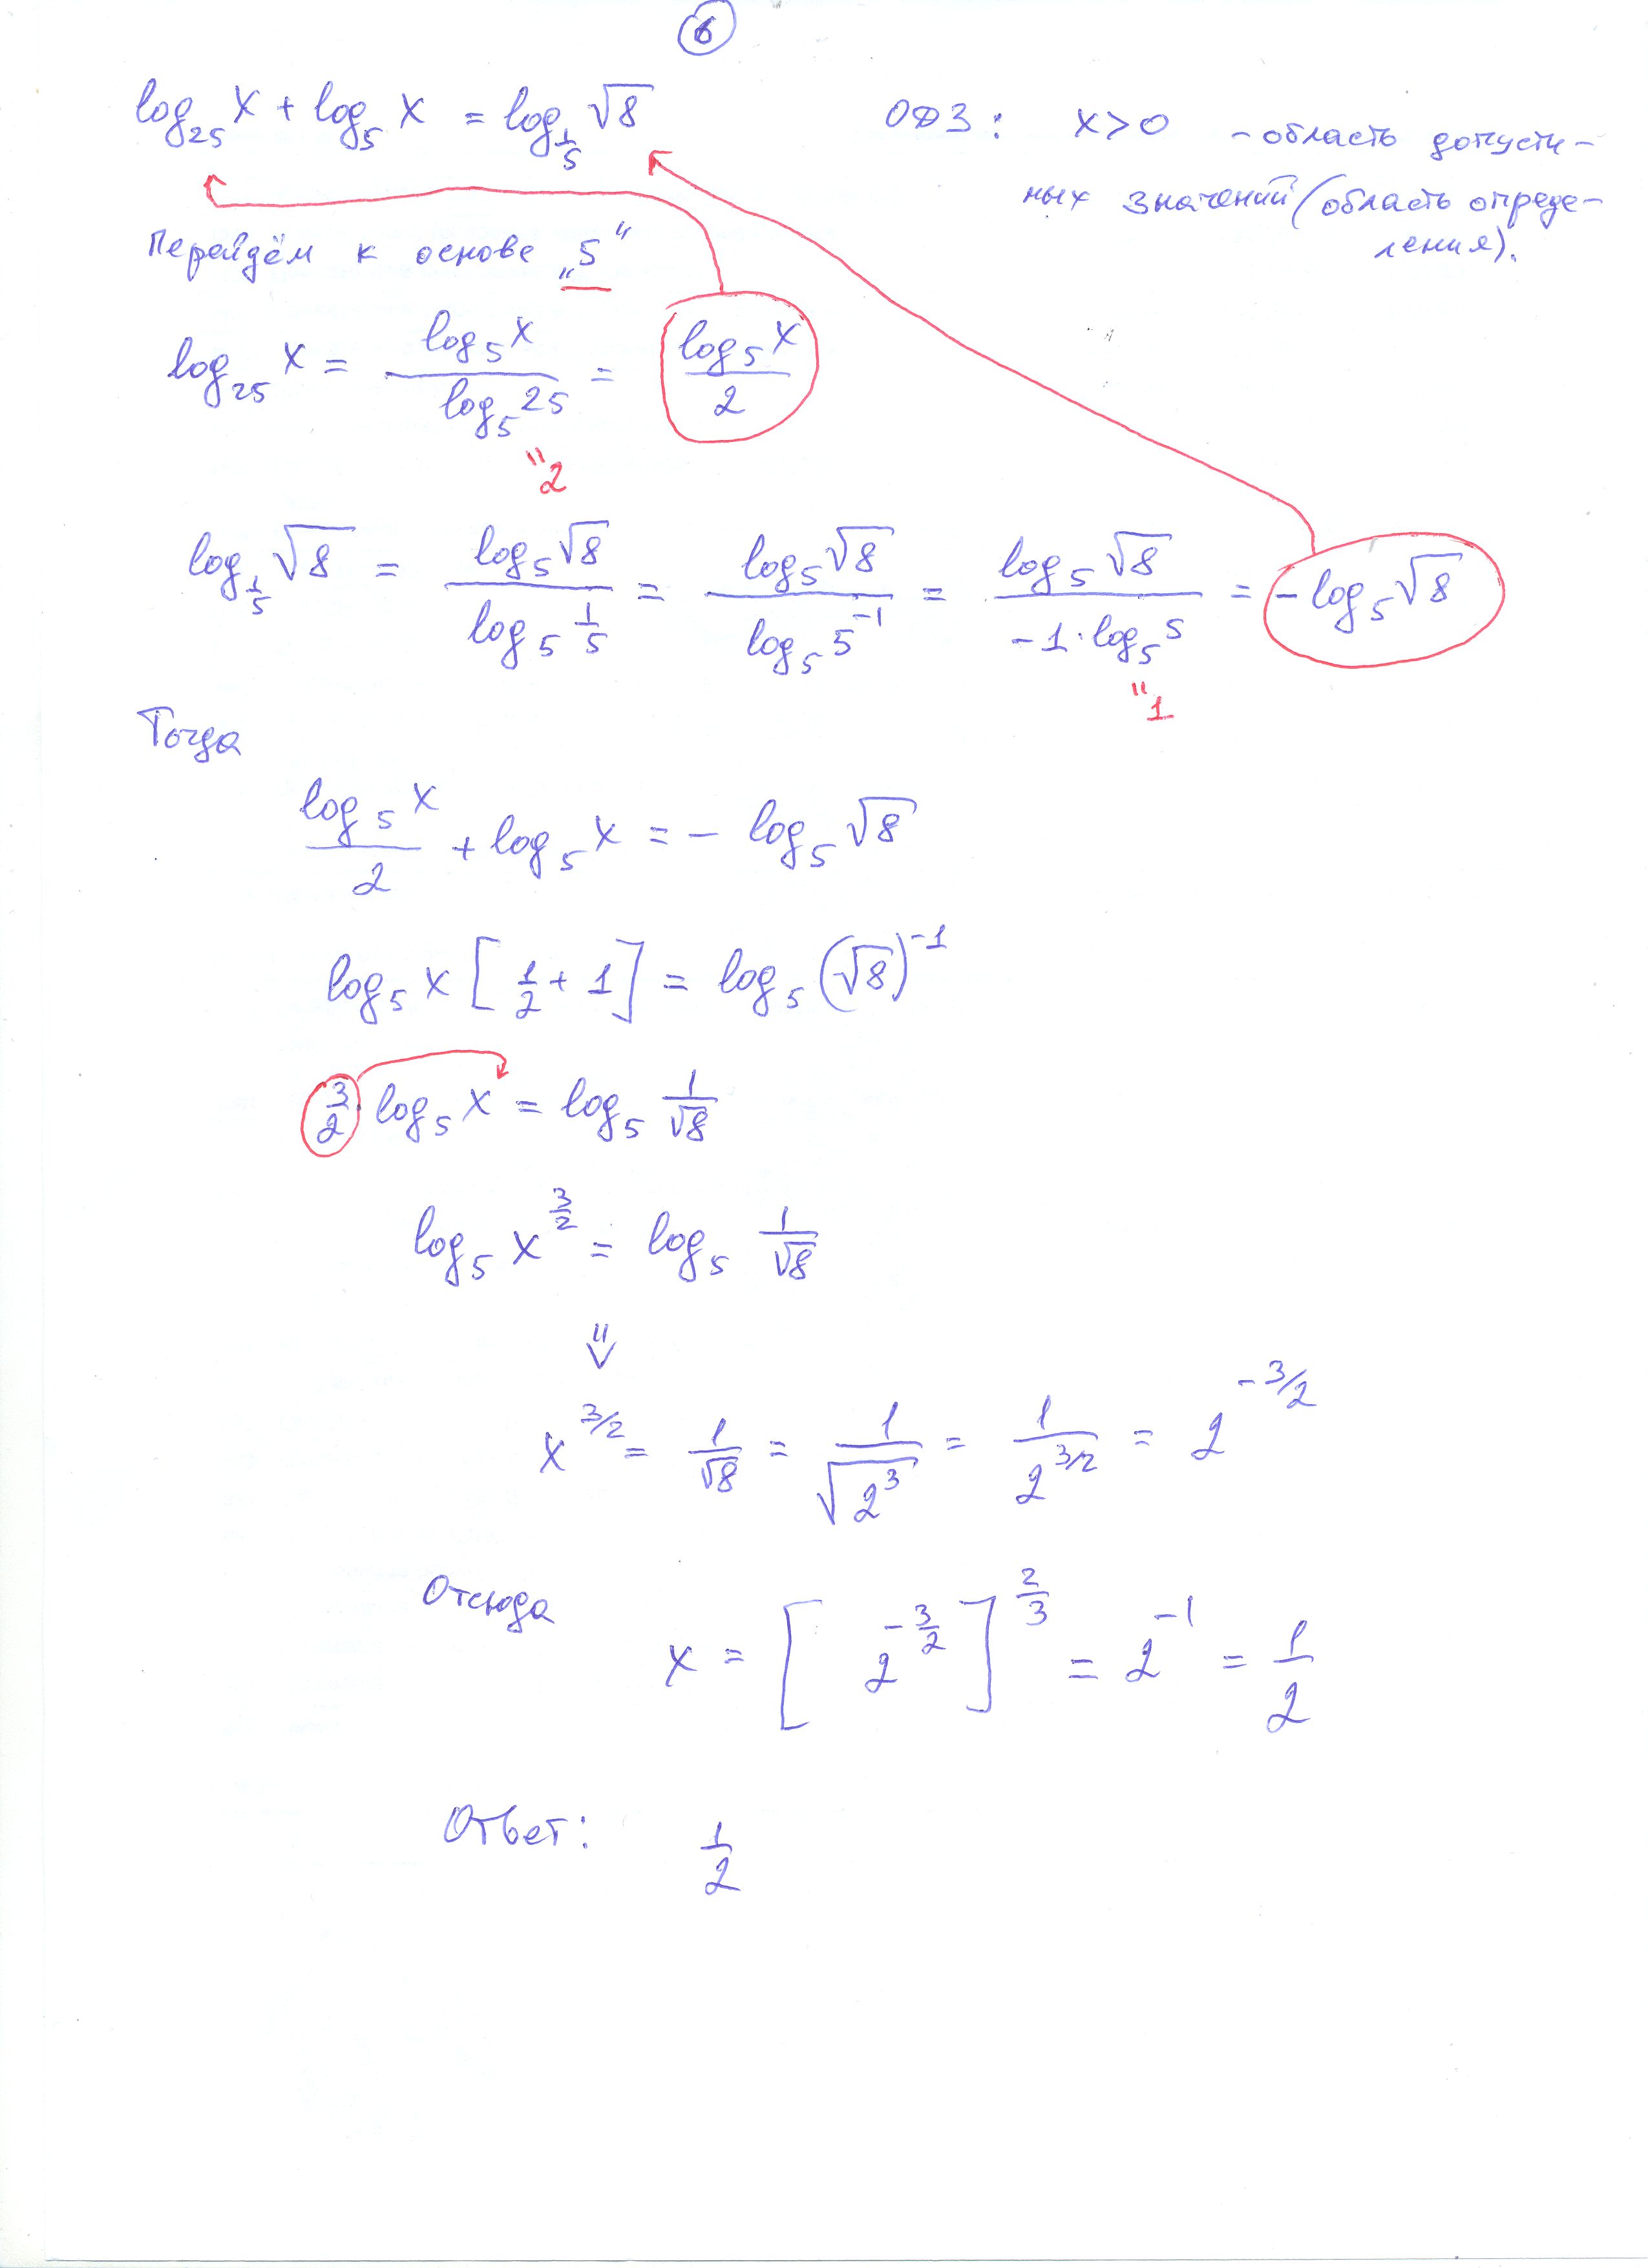 6
log₂₅ x + log₅ x = log_{1/5} √8 ОДЗ: x>0 - область допусти-
мых значений (область опреде-
ления).
Перейдём к основе „5“
log₂₅ x = log₅ x / log₅ 25 = log₅ x / 2
"2
log_{1/5} √8 = log₅ √8 / log₅ 1/5 = log₅ √8 / log₅ 5⁻¹ = log₅ √8 / -1·log₅ 5 = - log₅ √8
"1
Тогда
log₅ x / 2 + log₅ x = - log₅ √8
log₅ x [1/2 + 1] = log₅ (√8)⁻¹
3/2 · log₅ x = log₅ 1/√8
log₅ x^{3/2} = log₅ 1/√8
⇓
x^{3/2} = 1/√8 = 1/√2³ = 1/2^{3/2} = 2^{-3/2}
Отсюда
x = [2^{-3/2}]^{2/3} = 2⁻¹ = 1/2
Ответ: 1/2